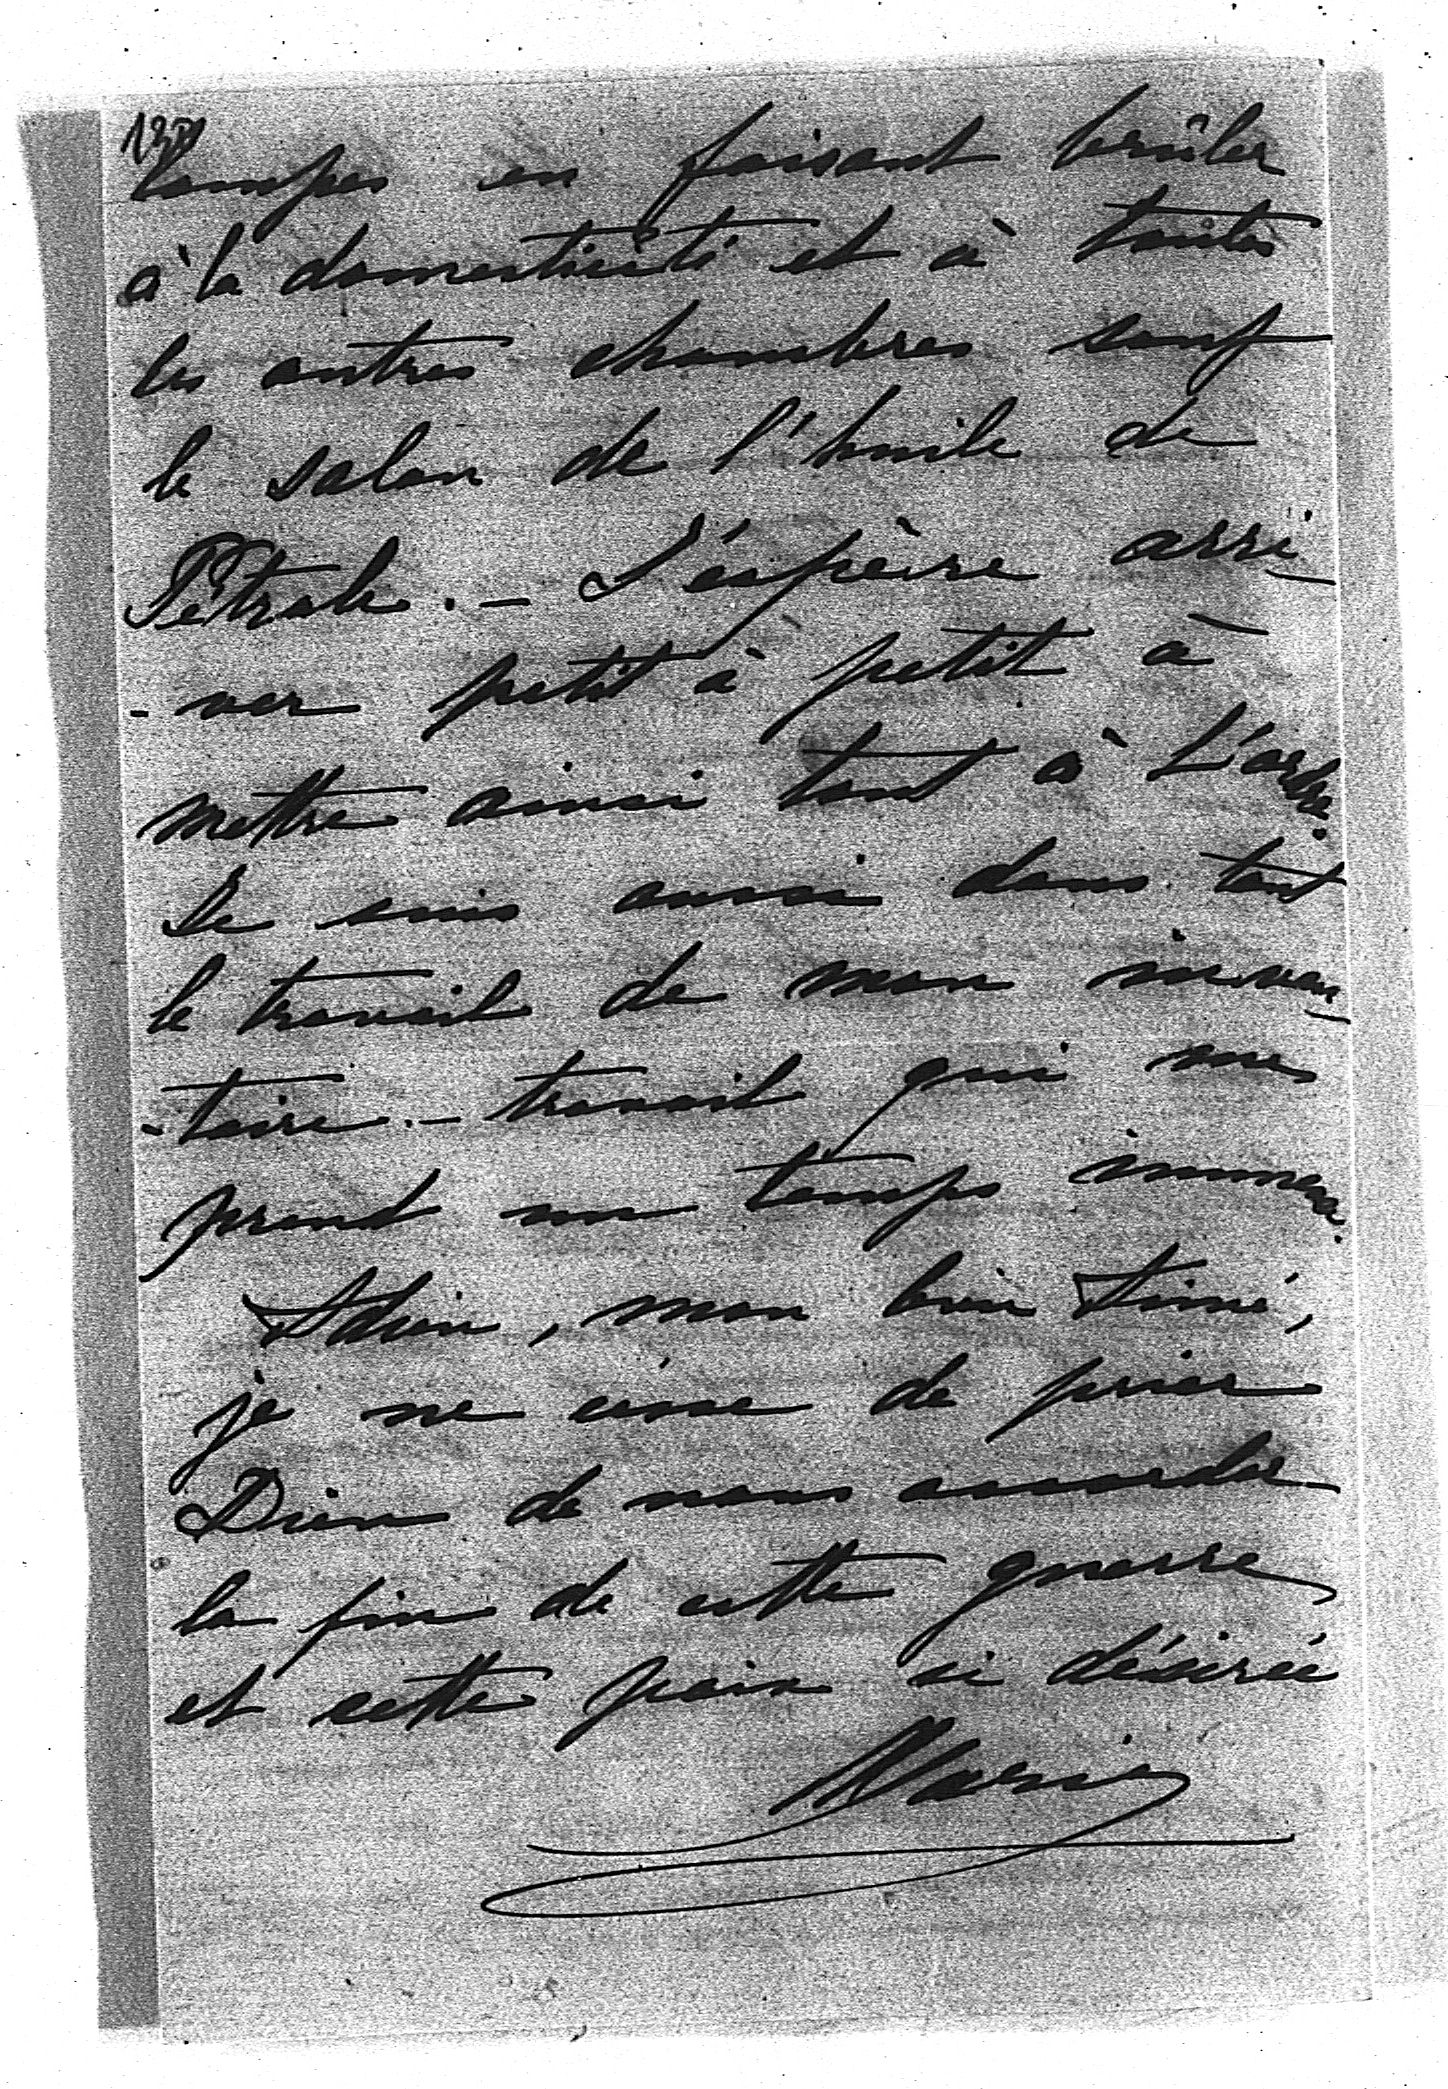 lampes en faisant brûler
à la domesticité et à toutes
les autres chambres sauf
le salon de l'huile de
Pétrole. _ J'espère arri_
- ver petit à petit à
mettre ainsi tout à l'ordre.
Je suis aussi dans tout
le travail de mon inven_
- taire. _ travail qui me
prend un temps immense.
Adieu, mon bien Aimé,
je ne cesse de prier
Dieu de nous accorder
la fin de cette guerre
et cette paix si désirée
Marie